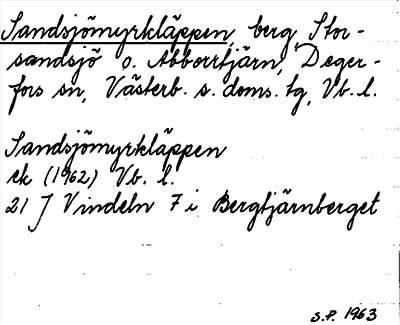 Sandsjömyrkläppen, berg, Stor-
sandsjö o. Abborrtjärn, Deger-
fors sn, Västerb. s. doms. tg, Vb. l.
Sandsjömyrkläppen
ek (1962) Vb. l.
21 J Vindeln 7 i Bergtjärnberget
S.P. 1963